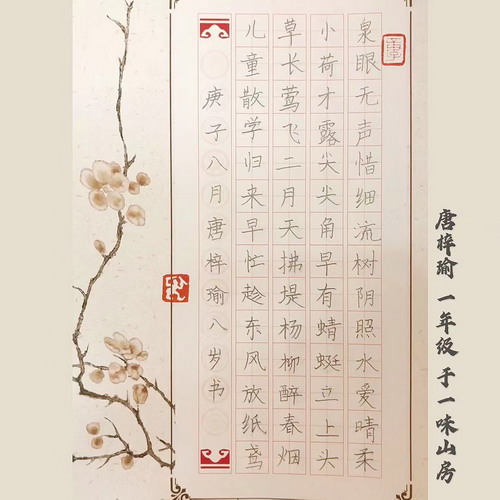 泉眼无声惜细流树阴照水爱晴柔
小荷才露尖尖角早有蜻蜓立上头
草长莺飞二月天拂堤杨柳醉春烟
儿童散学归来早忙趁东风放纸鸢
庚子八月唐梓瑜八岁书
唐梓瑜 一年级 于一味山房